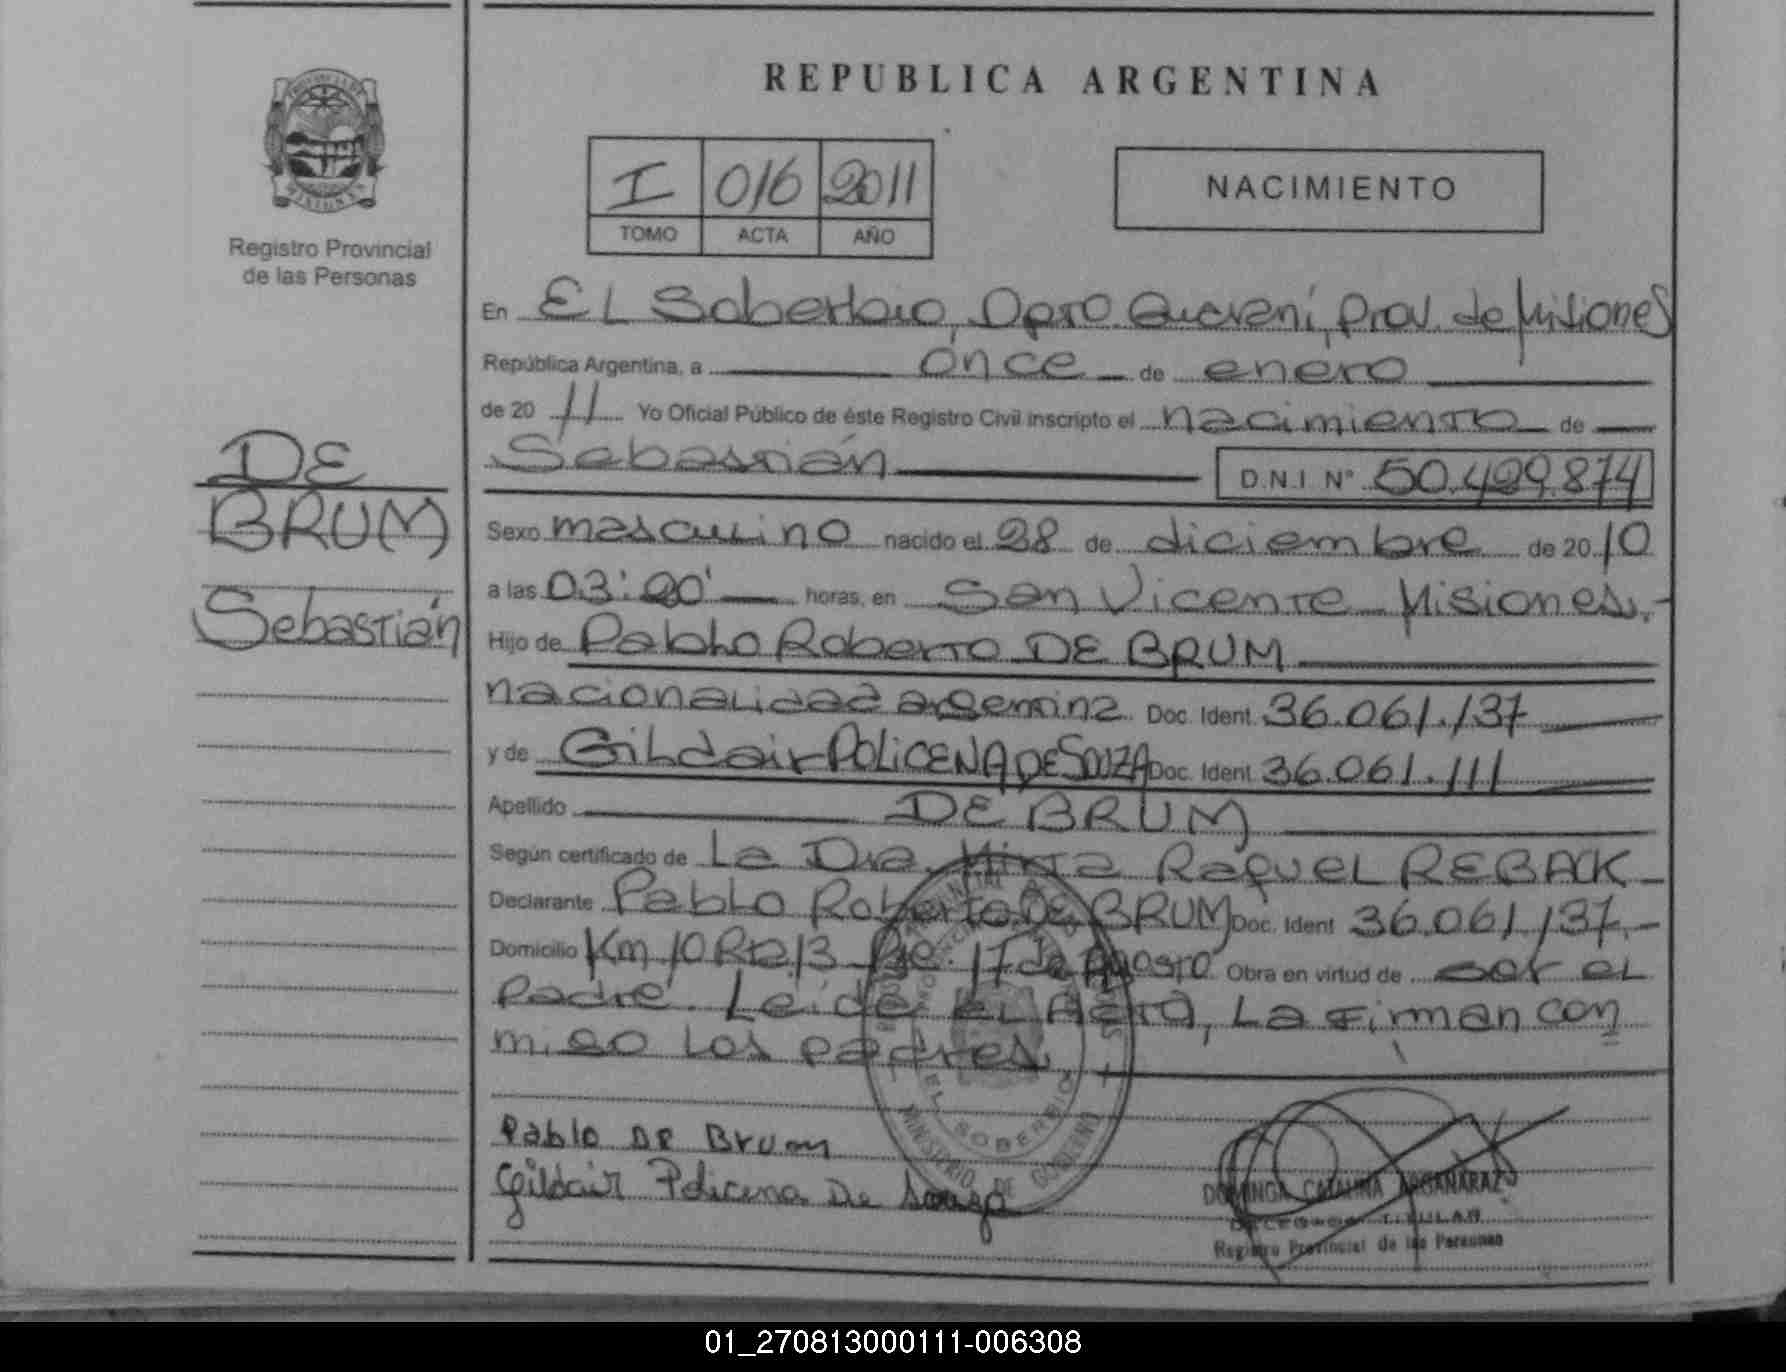 REPUBLICA ARGENTINA
PROVINCIA DE
MISIONES
Registro Provincial
de las Personas
I 016 2011
TOMO ACTA AÑO
NACIMIENTO
DE
BRUM
Sebastián
En EL Soberbio, Dpto. Guaraní, Prov. de Misiones
República Argentina, a once de enero
de 2011 Yo Oficial Público de éste Registro Civil inscripto el nacimiento de
Sebastián D.N.I. N° 50.499.874
Sexo masculino nacido el 28 de diciembre de 2010
a las 03:20' horas, en San Vicente Misiones.-
Hijo de Pablo Roberto DE BRUM
nacionalidad argentina Doc. Ident. 36.061.137
y de Gildair POLICENA DE SOUZA Doc. Ident. 36.061.111
Apellido DE BRUM
Según certificado de La Dra. Mirta Raquel REBACK
Declarante Pablo Roberto DE BRUM Doc. Ident 36.061.137.-
Domicilio Km 10 Rta 13 Pje. 17 de Agosto Obra en virtud de ser el
Padre. Leída el Acta, La firman con
migo Los padres.
EL SOBERBIO
MINISTERIO DE GOBIERNO
Pablo DE Brum
Gildair Policena De Souza
DOMINGA CATALINA ARGAÑARAZ
DELEGADA TITULAR
Registro Provincial de las Personas
01_270813000111-006308